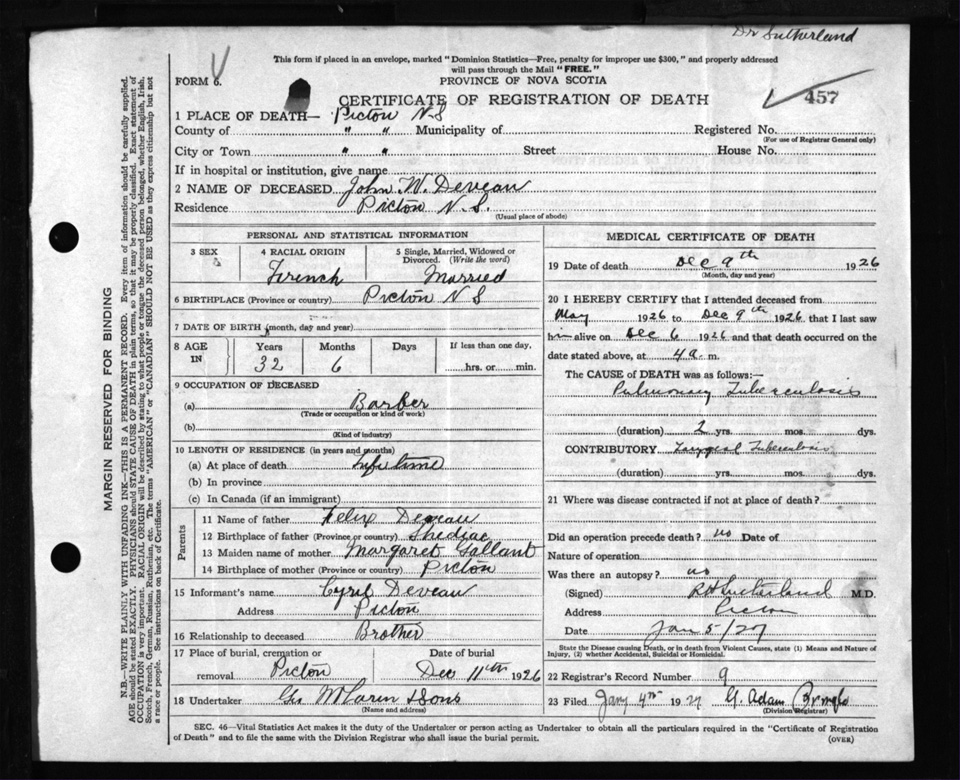 Dr Sutherland
This form if placed in an envelope, marked "Dominion Statistics—Free, penalty for improper use $300," and properly addressed
will pass through the Mail "FREE."
FORM 6.
PROVINCE OF NOVA SCOTIA
CERTIFICATE OF REGISTRATION OF DEATH
457
1 PLACE OF DEATH— Picton N.S
County of " " Municipality of Registered No.
(For use of Registrar General only)
City or Town " " Street House No.
If in hospital or institution, give name
2 NAME OF DECEASED John W. Deveau
Residence Picton N.S.
(Usual place of abode)
PERSONAL AND STATISTICAL INFORMATION
3 SEX 4 RACIAL ORIGIN 5 Single, Married, Widowed or
Divorced. (Write the word)
French Married
6 BIRTHPLACE (Province or country) Picton N S
7 DATE OF BIRTH (month, day and year)
8 AGE IN Years Months Days If less than one day,
32 6 hrs. or min.
9 OCCUPATION OF DECEASED
(a) Barber
(Trade or occupation or kind of work)
(b)
(Kind of industry)
10 LENGTH OF RESIDENCE (in years and months)
(a) At place of death Lifetime
(b) In province
(c) In Canada (if an immigrant)
Parents
11 Name of father Felix Deveau
12 Birthplace of father (Province or country) Shediac
13 Maiden name of mother Margaret Gallant
14 Birthplace of mother (Province or country) Picton
15 Informant's name Cyril Deveau
Address Picton
16 Relationship to deceased Brother
17 Place of burial, cremation or Date of burial
removal Picton Dec 11th 1926
18 Undertaker & Sons
(Name and address)
MEDICAL CERTIFICATE OF DEATH
19 Date of death Dec 9th 1926
(Month, day and year)
20 I HEREBY CERTIFY that I attended deceased from
May 1926 to Dec 9th 1926 that I last saw
him alive on Dec 6 1926 and that death occurred on the
date stated above, at 4 a. m.
The CAUSE of DEATH was as follows:—
Pulmonary Tuberculosis
(duration) 2 yrs. mos. dys.
CONTRIBUTORY Laryngeal Tuberculosis
(duration) yrs. mos. dys.
21 Where was disease contracted if not at place of death?
Did an operation precede death? no Date of
Nature of operation
Was there an autopsy? no
(Signed) R H Sutherland M.D.
Address Picton
Date Jan 5/27
State the Disease causing Death, or in death from Violent Causes, state (1) Means and Nature of
Injury, (2) whether Accidental, Suicidal or Homicidal.
22 Registrar's Record Number 9
23 Filed Jany 4th 1927 G. Adam
(Division Registrar)
SEC. 46—Vital Statistics Act makes it the duty of the Undertaker or person acting as Undertaker to obtain all the particulars required in the "Certificate of Registration
of Death" and to file the same with the Division Registrar who shall issue the burial permit.
(OVER)
MARGIN RESERVED FOR BINDING
N.B.—WRITE PLAINLY WITH UNFADING INK—THIS IS A PERMANENT RECORD. Every item of information should be carefully supplied.
AGE should be stated EXACTLY. PHYSICIANS should STATE CAUSE OF DEATH in plain terms, so that it may be properly classified. Exact statement of
OCCUPATION is very important. RACIAL ORIGIN will be described by stating to what people or tongue the deceased person belonged, whether English, Irish,
Scotch, French, German, Russian, Ruthenian, etc. The terms "AMERICAN" or "CANADIAN" SHOULD NOT BE USED as they express citizenship but not
a race or people. See instructions on back of Certificate.